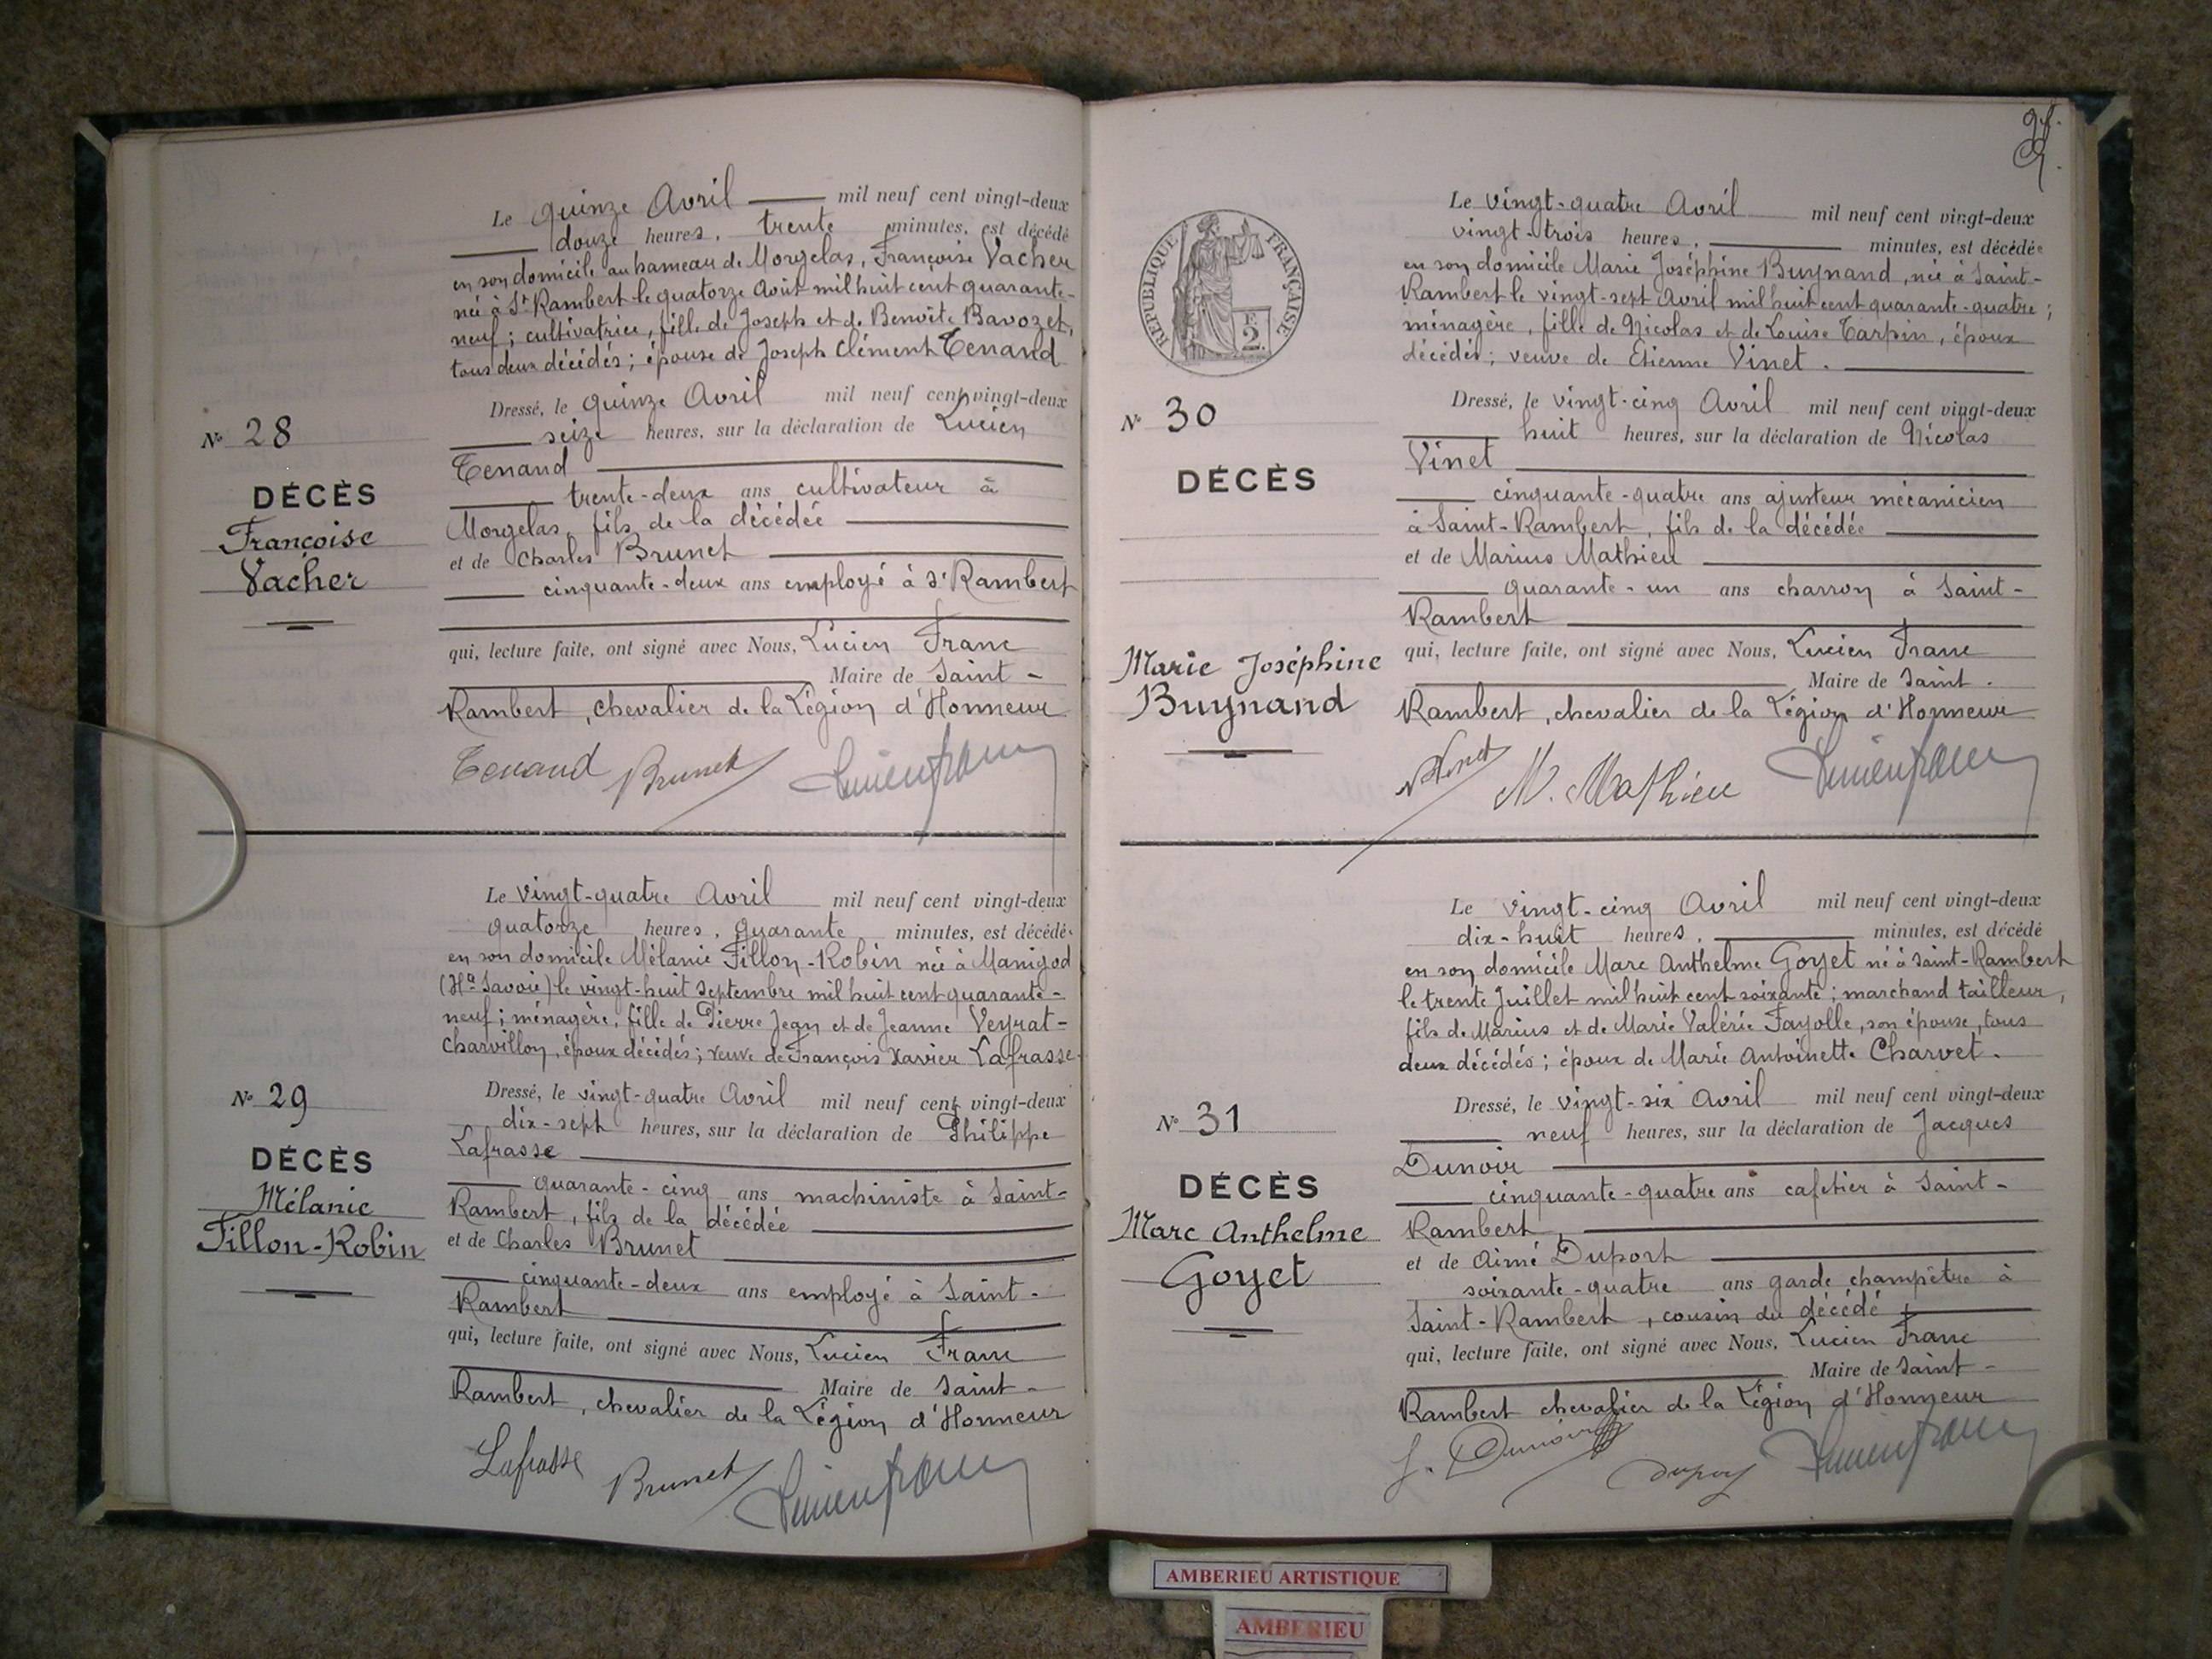 Le quinze Avril mil neuf cent vingt-deux
douze heures, trente minutes, est décédé
en son domicile au hameau de Morgelas, Françoise Vacher
née à St Rambert le quatorze Août mil huit cent quarante-
neuf ; cultivatrice, fille de Joseph et de Benoîte Bavozet,
tous deux décédés ; épouse de Joseph Clément Tenand
Dressé, le quinze Avril mil neuf cent vingt-deux
seize heures, sur la déclaration de Lucien
Tenand
trente-deux ans cultivateur à
Morgelas, fils de la décédée
et de Charles Brunet
cinquante-deux ans employé à St Rambert
qui, lecture faite, ont signé avec Nous, Lucien Franc
Maire de Saint-
Rambert, chevalier de la Légion d'Honneur
Tenand Brunet Lucien Franc
N° 28
DÉCÈS
Françoise
Vacher
Le vingt-quatre Avril mil neuf cent vingt-deux
quatorze heures, quarante minutes, est décédé
en son domicile Mélanie Fillon-Robin née à Manigod
(Hte Savoie) le vingt-huit septembre mil huit cent quarante-
neuf ; ménagère, fille de Pierre Jean et de Jeanne Veyrat-
Charvillon, époux décédés ; veuve de François Xavier Lafrasse.
Dressé, le vingt-quatre Avril mil neuf cent vingt-deux
dix-sept heures, sur la déclaration de Philippe
Lafrasse
quarante-cinq ans machiniste à Saint-
Rambert, fils de la décédée
et de Charles Brunet
cinquante-deux ans employé à Saint-
Rambert
qui, lecture faite, ont signé avec Nous, Lucien Franc
Maire de Saint-
Rambert, chevalier de la Légion d'Honneur
Lafrasse Brunet Lucien Franc
N° 29
DÉCÈS
Mélanie
Fillon-Robin
RÉPUBLIQUE FRANÇAISE
F.
2.
Le vingt-quatre Avril mil neuf cent vingt-deux
vingt-trois heures, minutes, est décédée
en son domicile Marie Joséphine Buynand, née à Saint-
Rambert le vingt-sept Avril mil huit cent quarante-quatre ;
ménagère, fille de Nicolas et de Louise Tarpin, époux
décédés ; veuve de Etienne Vinet.
Dressé, le vingt-cinq Avril mil neuf cent vingt-deux
huit heures, sur la déclaration de Nicolas
Vinet
cinquante-quatre ans ajusteur mécanicien
à Saint-Rambert, fils de la décédée
et de Marius Mathieu
quarante-un ans charron à Saint-
Rambert
qui, lecture faite, ont signé avec Nous, Lucien Franc
Maire de Saint-
Rambert, chevalier de la Légion d'Honneur
Vinet M. Mathieu Lucien Franc
N° 30
DÉCÈS
Marie Joséphine
Buynand
Le vingt-cinq Avril mil neuf cent vingt-deux
dix-huit heures, minutes, est décédé
en son domicile Marc Anthelme Goyet né à Saint-Rambert
le trente Juillet mil huit cent soixante ; marchand tailleur,
fils de Marius et de Marie Valérie Fayolle, son épouse, tous
deux décédés ; époux de Marie Antoinette Charvet.
Dressé, le vingt-six Avril mil neuf cent vingt-deux
neuf heures, sur la déclaration de Jacques
Dunoir
cinquante-quatre ans cafetier à Saint-
Rambert,
et de Aimé Duport
soixante-quatre ans garde champêtre à
Saint-Rambert, cousin du décédé
qui, lecture faite, ont signé avec Nous, Lucien Franc
Maire de Saint-
Rambert chevalier de la Légion d'Honneur
J. Dunoir Duport Lucien Franc
N° 31
DÉCÈS
Marc Anthelme
Goyet
AMBERIEU ARTISTIQUE
AMBERIEU